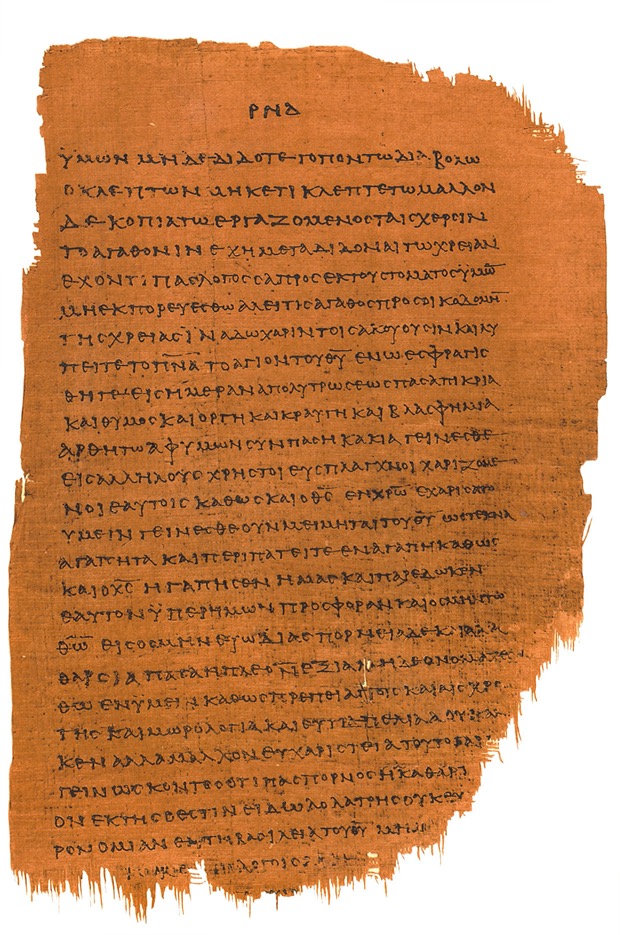 ΡΝΔ
ΥΜΩΝ ΜΗΔΕ ΔΙΔΟΤΕ ΤΟΠΟΝ ΤΩ ΔΙΑΒΟΛΩ
Ο ΚΛΕΠΤΩΝ ΜΗΚΕΤΙ ΚΛΕΠΤΕΤΩ ΜΑΛΛΟΝ
ΔΕ ΚΟΠΙΑΤΩ ΕΡΓΑΖΟΜΕΝΟϹ ΤΑΙϹ ΧΕΡϹΙΝ
ΤΟ ΑΓΑΘΟΝ ΙΝ ΕΧΗ ΜΕΤΑΔΙΔΟΝΑΙ ΤΩ ΧΡΕΙΑΝ
ΕΧΟΝΤΙ ΠΑϹ ΛΟΓΟϹ ϹΑΠΡΟϹ ΕΚ ΤΟΥ ϹΤΟΜΑΤΟϹ ΥΜΩ̅
ΜΗ ΕΚΠΟΡΕΥΕϹΘΩ ΑΛ ΕΙ ΤΙϹ ΑΓΑΘΟϹ ΠΡΟϹ ΟΙΚΟΔΟΜΗ̅
ΤΗϹ ΧΡΕΙΑϹ ΙΝΑ ΔΩ ΧΑΡΙΝ ΤΟΙϹ ΑΚΟΥΟΥϹΙΝ ΚΑΙ ΛΥ
ΠΕΙΤΕ ΤΟ Π̅Ν̅Α̅ ΤΟ ΑΓΙΟΝ ΤΟΥ Θ̅Υ̅ ΕΝ Ω ΕϹΦΡΑΓΙϹ
ΘΗΤΕ ΕΙϹ ΗΜΕΡΑΝ ΑΠΟΛΥΤΡΩϹΕΩϹ ΠΑϹΑ ΠΙΚΡΙΑ
ΚΑΙ ΘΥΜΟϹ ΚΑΙ ΟΡΓΗ ΚΑΙ ΚΡΑΥΓΗ ΚΑΙ ΒΛΑϹΦΗΜΙΑ
ΑΡΘΗΤΩ ΑΦ ΥΜΩΝ ϹΥΝ ΠΑϹΗ ΚΑΚΙΑ ΓΕΙΝΕϹΘΕ
ΕΙϹ ΑΛΛΗΛΟΥϹ ΧΡΗϹΤΟΙ ΕΥϹΠΛΑΓΧΝΟΙ ΧΑΡΙΖΟΜΕ
ΝΟΙ ΕΑΥΤΟΙϹ ΚΑΘΩϹ ΚΑΙ Ο Θ̅Ϲ̅ ΕΝ Χ̅Ρ̅Ω̅ ΕΧΑΡΙϹΑΤΟ
ΥΜΕΙΝ ΓΕΙΝΕϹΘΕ ΟΥΝ ΜΕΙΜΗΤΑΙ ΤΟΥ Θ̅Υ̅ ΩϹ ΤΕΚΝΑ
ΑΓΑΠΗΤΑ ΚΑΙ ΠΕΡΙΠΑΤΕΙΤΕ ΕΝ ΑΓΑΠΗ ΚΑΘΩϹ
ΚΑΙ Ο Χ̅Ϲ̅ ΗΓΑΠΗϹΕΝ ΗΜΑϹ ΚΑΙ ΠΑΡΕΔΩΚΕΝ
ΕΑΥΤΟΝ ΥΠΕΡ ΗΜΩΝ ΠΡΟϹΦΟΡΑΝ ΚΑΙ ΘΥϹΙΑΝ ΤΩ
Θ̅Ω̅ ΕΙϹ ΟϹΜΗΝ ΕΥΩΔΙΑϹ ΠΟΡΝΕΙΑ ΔΕ ΚΑΙ ΑΚΑ
ΘΑΡϹΙΑ ΠΑϹΑ Η ΠΛΕΟΝΕΞΙΑ ΜΗΔΕ ΟΝΟΜΑΖΕϹ
ΘΩ ΕΝ ΥΜΕΙΝ ΚΑΘΩϹ ΠΡΕΠΕΙ ΑΓΙΟΙϹ ΚΑΙ ΑΙϹΧΡΟ
ΤΗϹ ΚΑΙ ΜΩΡΟΛΟΓΙΑ ΚΑΙ ΕΥΤΡΑΠΕΛΙΑ Α ΟΥΚ ΑΝΗ
ΚΕΝ ΑΛΛΑ ΜΑΛΛΟΝ ΕΥΧΑΡΙϹΤΕΙΑ ΤΟΥΤΟ ΓΑΡ
ΓΕΙΝΩϹΚΟΝΤΕϹ ΟΤΙ ΠΑϹ ΠΟΡΝΟϹ Η ΑΚΑΘΑΡΤ
ΟϹ Η ΠΛΕΟΝΕΚΤΗϹ Ο ΕϹΤΙΝ ΕΙΔΩΛΟΛΑΤΡΗϹ ΟΥΚ
ΡΟΝΟΜΙΑΝ ΕΝ ΤΗ ΒΑϹΙΛΕΙΑ ΤΟΥ Θ̅Υ̅